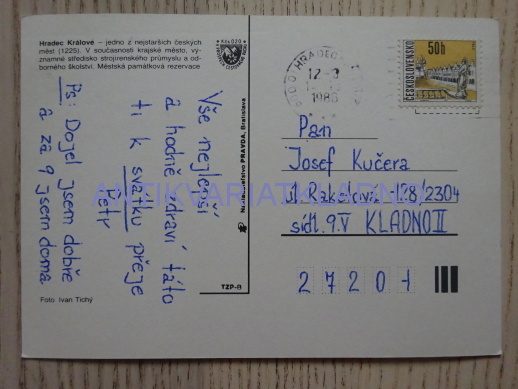 Hradec Králové – jedno z nejstarších českých
měst (1225). V současnosti krajské město, vý-
znamné středisko strojírenského průmyslu a od-
borného školství. Městská památková rezervace
Kčs 0,20
Vše nejlepší
a hodně zdraví táto
ti k svátku přeje
Petr
Ps: Dojel jsem dobře
a za 9 jsem doma
Foto Ivan Tichý
Nakladatelstvo PRAVDA, Bratislava
TZP-B
HRADEC
1986
50h
ČESKOSLOVENSKO
Pan
Josef Kučera
128/2304
sídl. 9.V KLADNO II
27201
ANTIKVARIATKLADNO